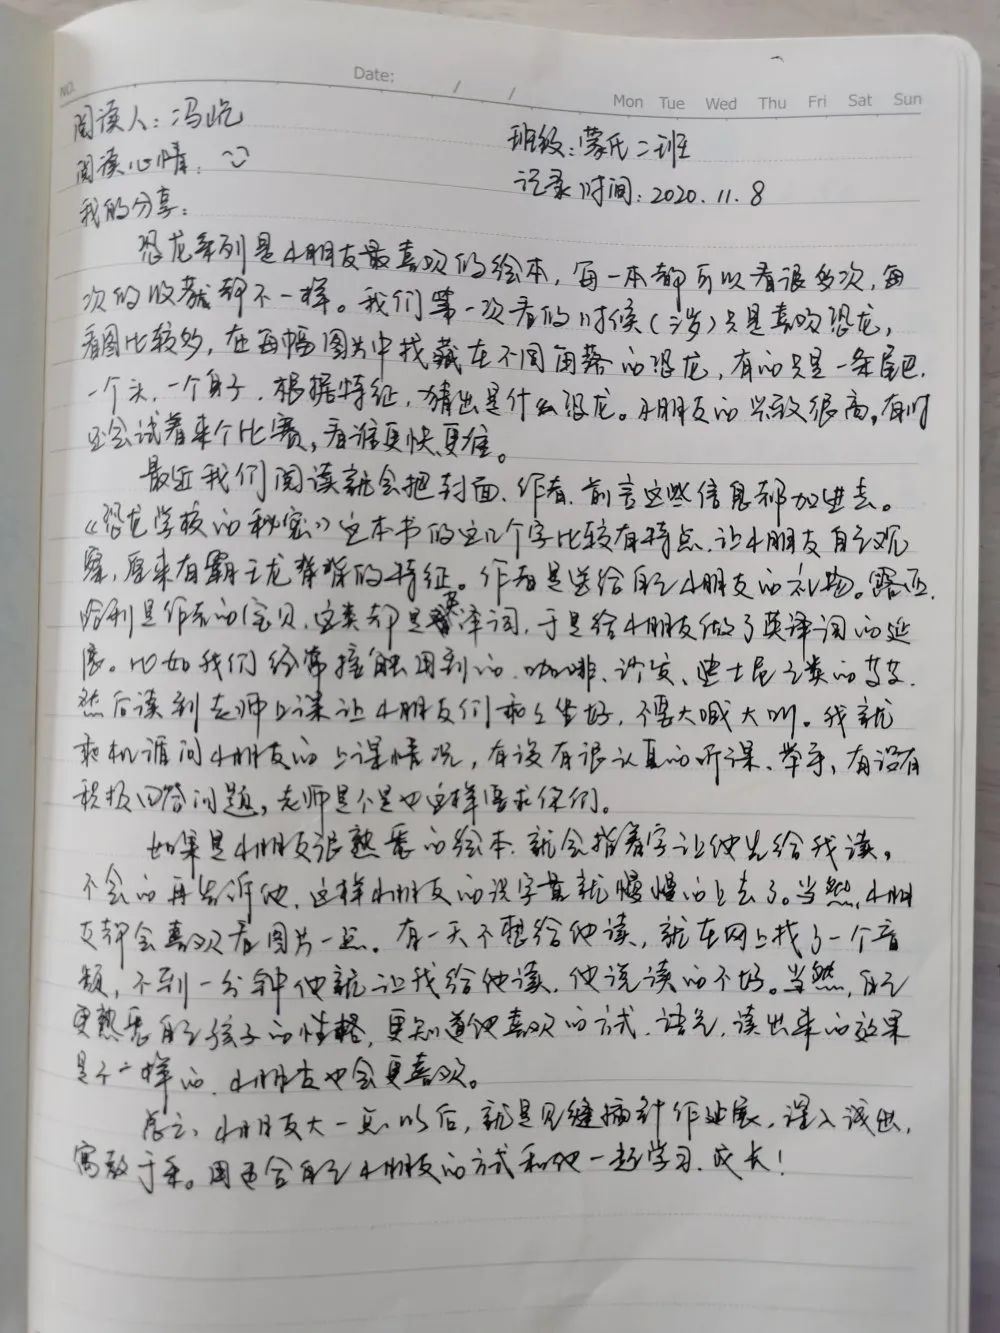 NO.
Date: / /
Mon Tue Wed Thu Fri Sat Sun
阅读人：冯屹
班级：蒙氏二班
阅读心情：
记录时间：2020.11.8
我的分享：
恐龙系列是小朋友最喜欢的绘本，每一本都可以看很多次，每
次的收获都不一样。我们第一次看的时候（3岁）只是喜欢恐龙，
看图比较多，在每幅图片中找藏在不同角落的恐龙，有的只是一条尾巴，
一个头，一个身子，根据特征，猜出是什么恐龙。小朋友的兴致很高，有时
还会试着来个比赛，看谁更快更准。
最近我们阅读就会把封面、作者、前言这些信息都加进去。
《恐龙学校的秘密》这本书的这几个字比较有特点，让小朋友自己观
察，原来有霸王龙脊背的特征。作者是送给自己小朋友的礼物。露西、
哈利是作者的宝贝，这类都是英译词，于是给小朋友做了英译词的延
展。比如我们经常接触用到的，咖啡、沙发、迪士尼之类的等等，
然后读到老师上课让小朋友们乖乖坐好，不要大喊大叫。我就
乘机询问小朋友的上课情况，有没有很认真的听课、举手、有没有
积极回答问题，老师是不是也这样要求你们。
如果是小朋友很熟悉的绘本，就会指着字让他先给我读，
不会的再告诉他，这样小朋友的识字量就慢慢的上去了。当然，小朋
友都会喜欢看图片一点。有一天不想给他读，就在网上找了一个音
频，不到一分钟他就让我给他读，他说读的不好。当然，自己
更熟悉自己孩子的性格，更知道他喜欢的方式、语气，读出来的效果
是不一样的，小朋友也会更喜欢。
总之，小朋友大一点以后，就是见缝插针作延展，深入浅出，
寓教于乐。用适合自己小朋友的方式和他一起学习、成长！